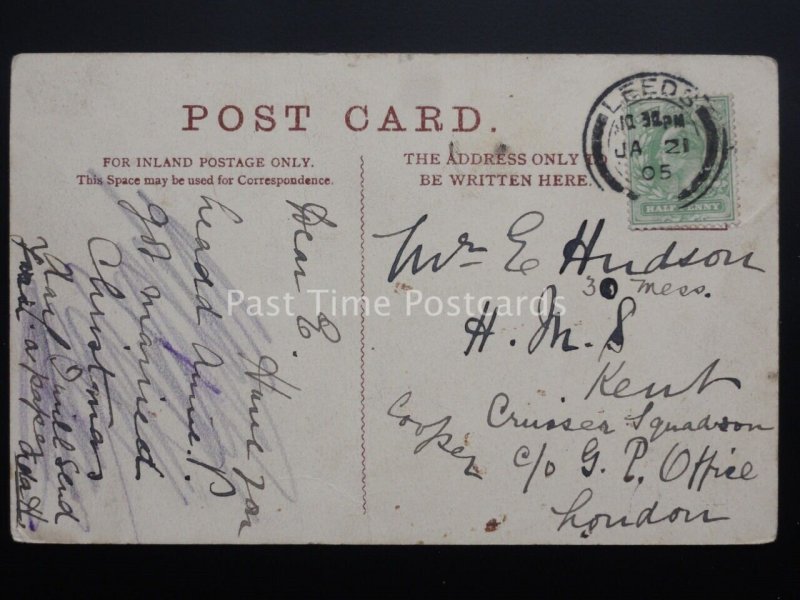 POST CARD.
FOR INLAND POSTAGE ONLY.
This Space may be used for Correspondence.
THE ADDRESS ONLY TO
BE WRITTEN HERE.
LEEDS
PM
JA 21
05
HALFPENNY
Dear E.
Have you
headd Annie. P
got married
Christmas
I will send
a paper
Ada H.
Mr E Hudson
30 Mess.
H. M. S
Kent
Cruiser Squadron
Cooper
c/o G. P. Office
London
Past Time Postcards